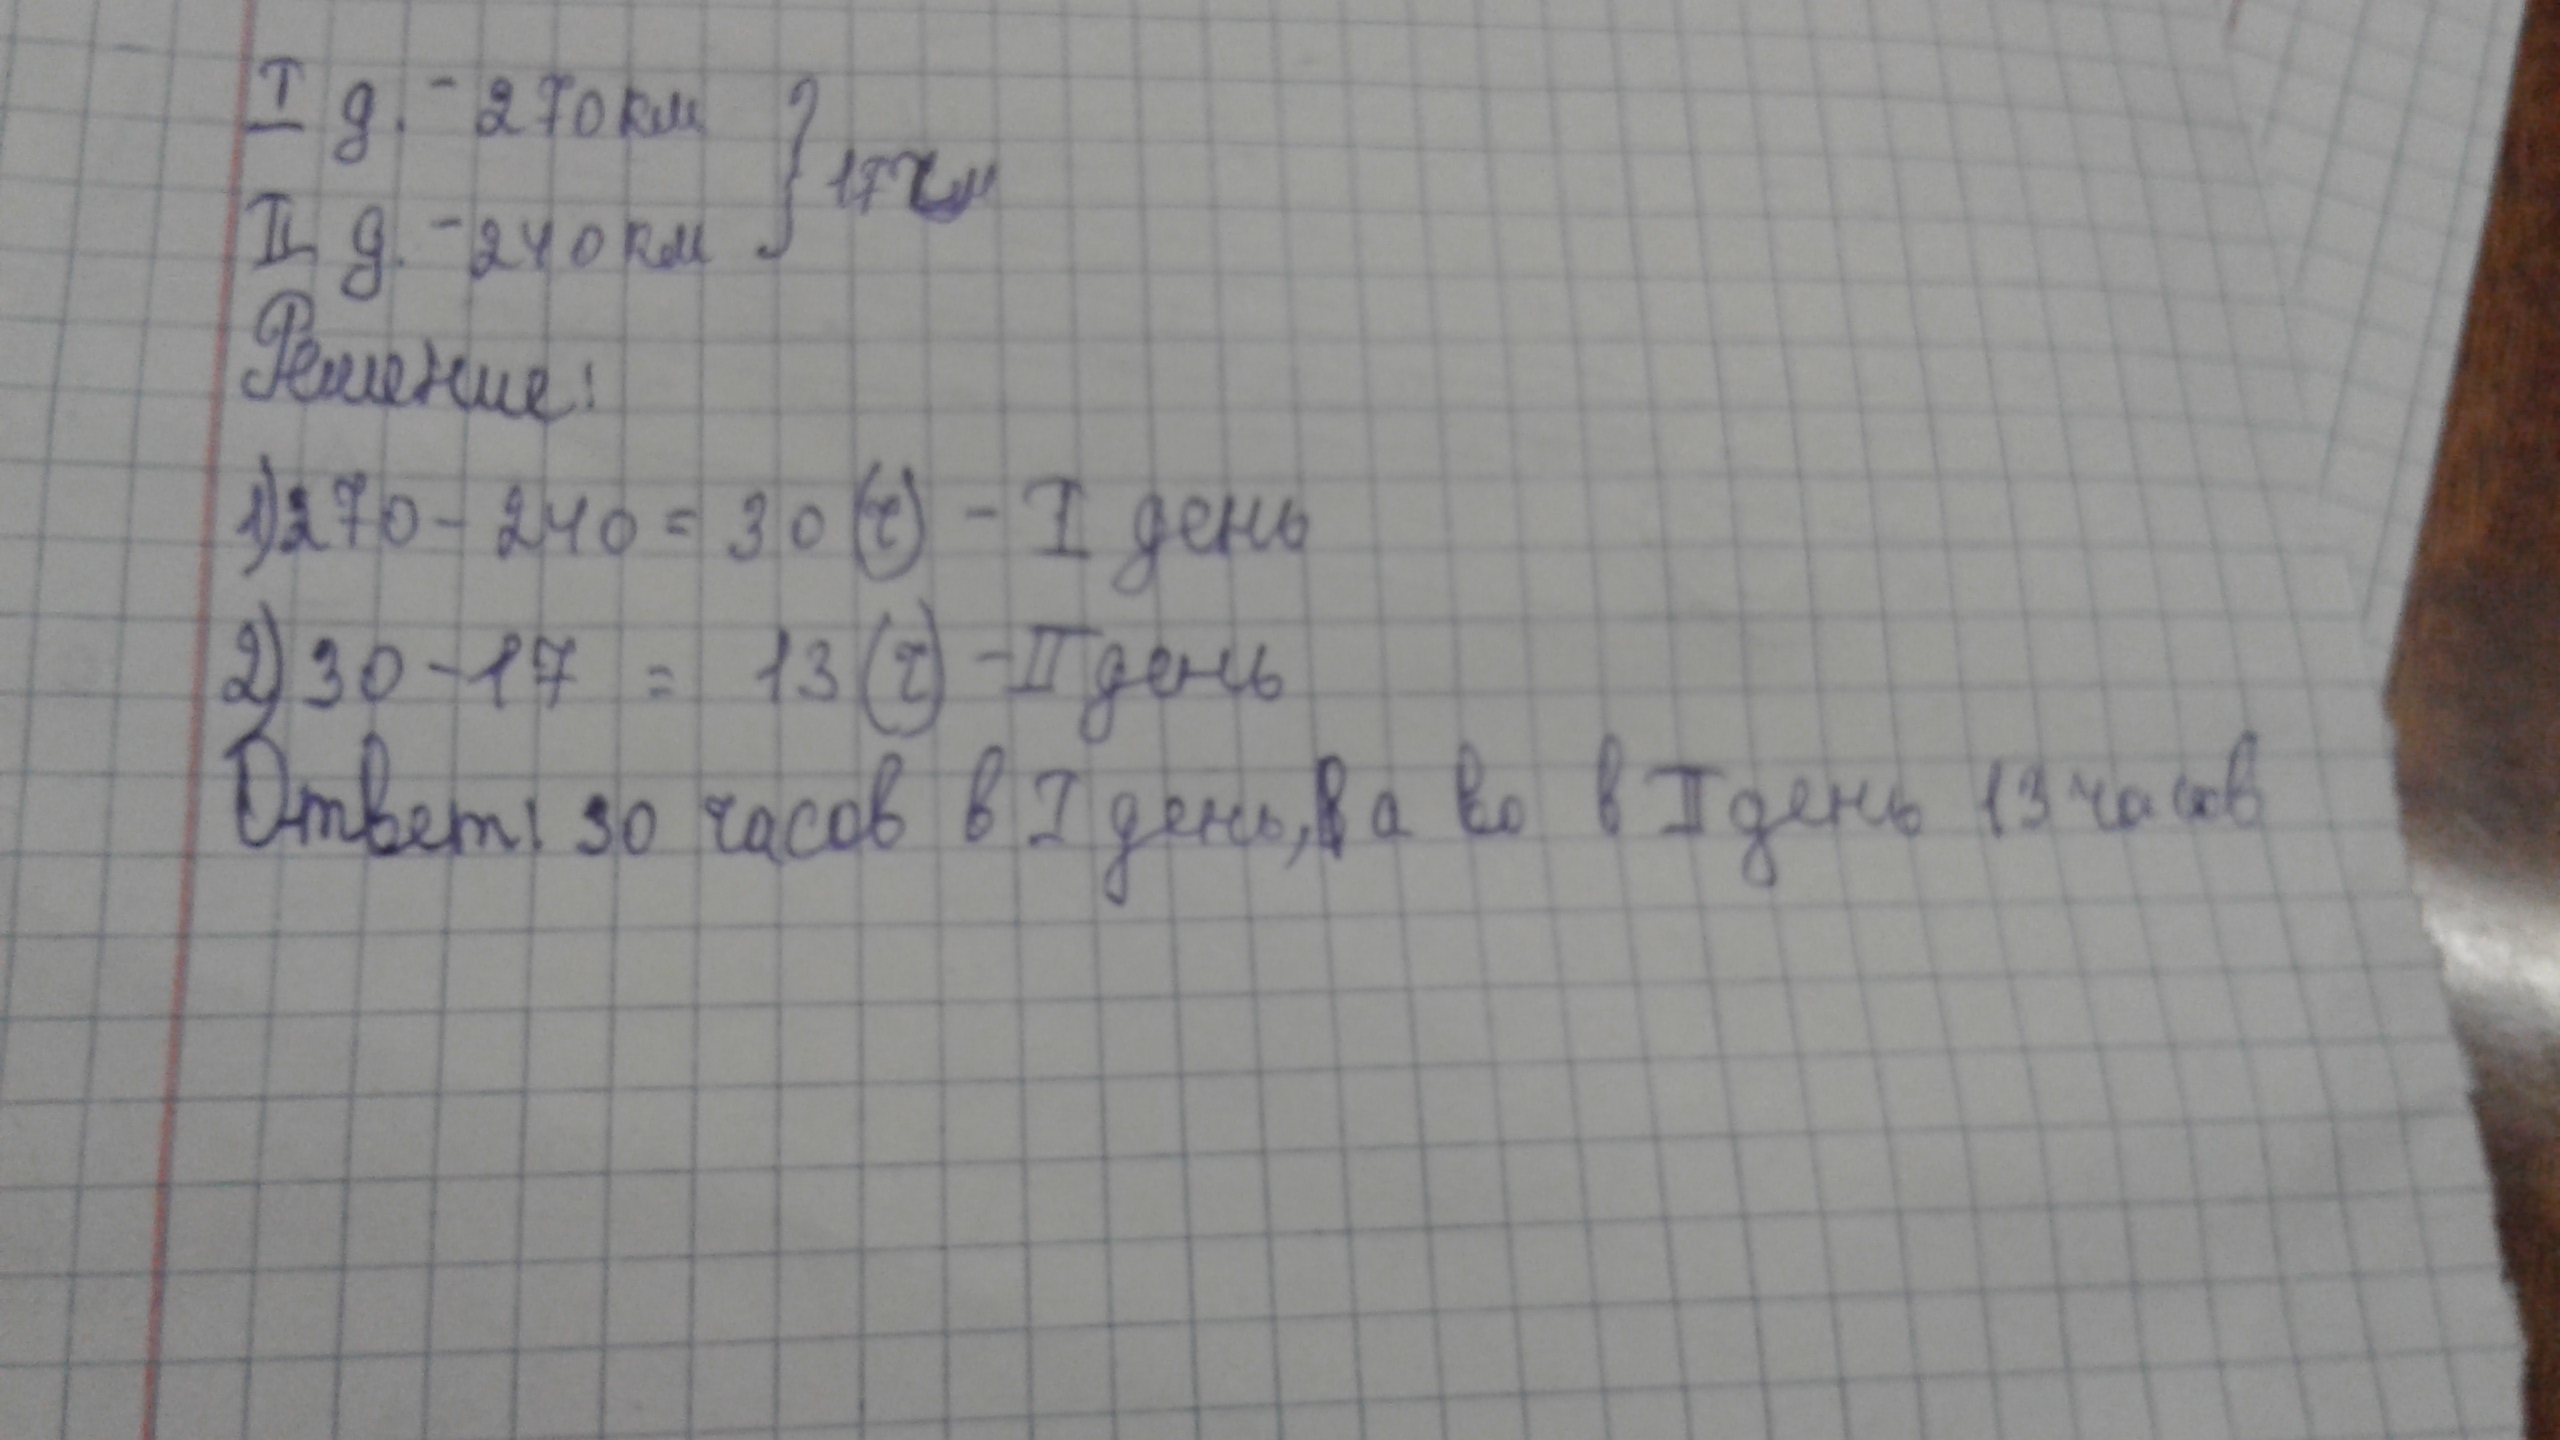 I д. - 270 км
} 17 ч
II д. - 240 км
Решение:
1) 270 - 240 = 30 (ч) - I день
2) 30 - 17 = 13 (ч) - II день
Ответ: 30 часов в I день, а во в II день 13 часов